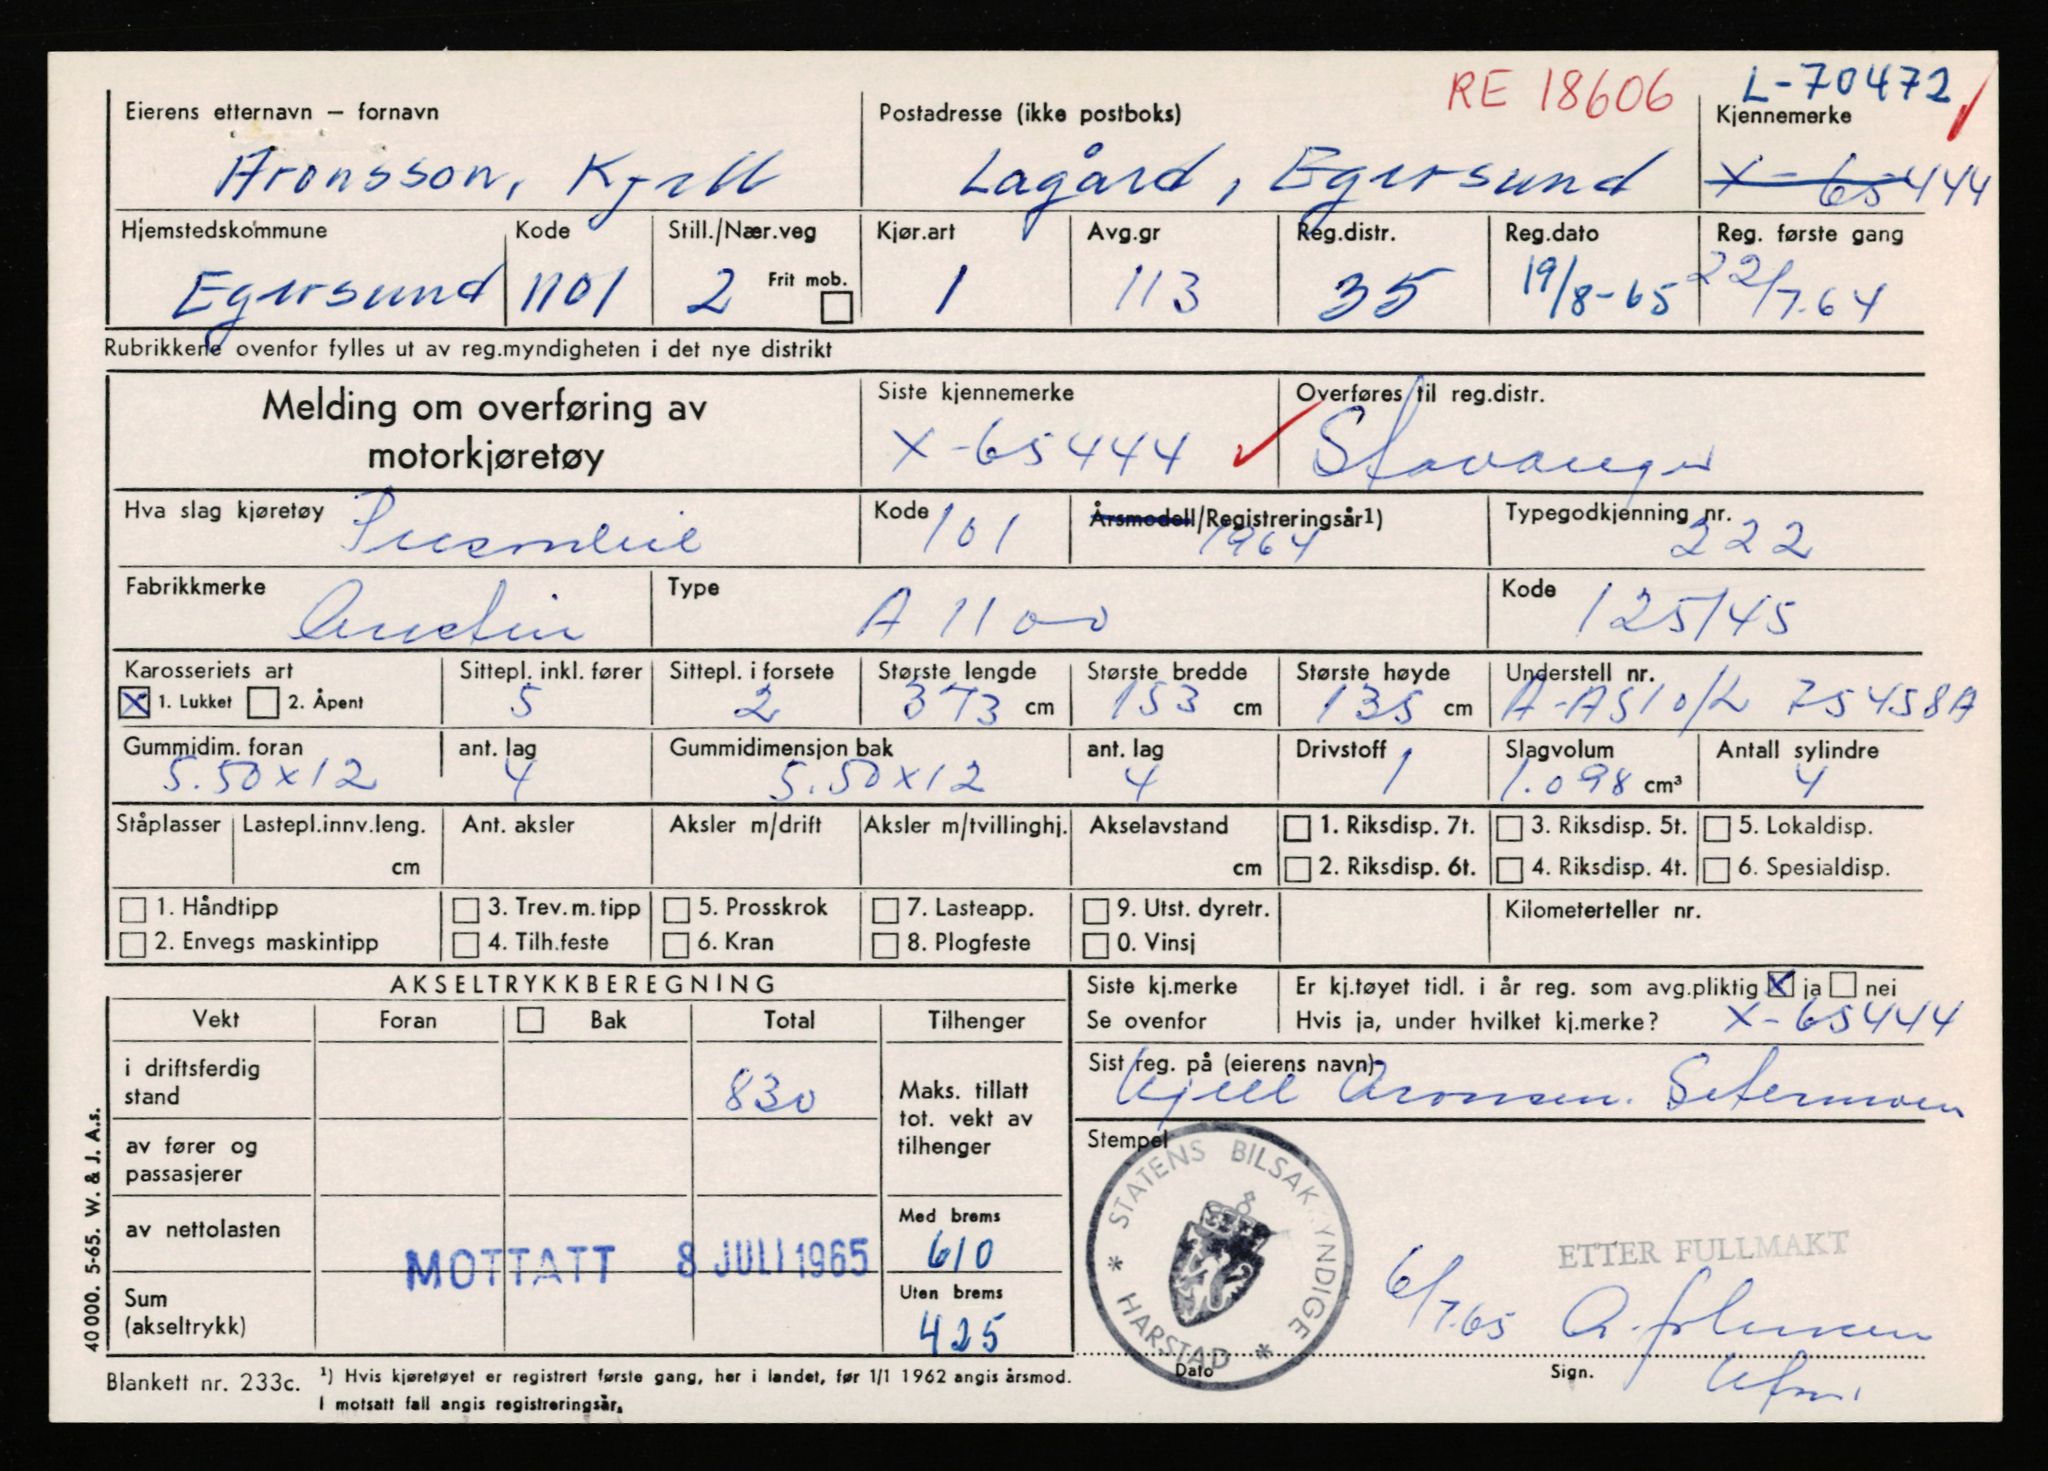 RE 18606 L-70472
Eierens etternavn — fornavn Postadresse (ikke postboks) Kjennemerke
Aronsson, Kjell Lagård, Egersund X-65444
Hjemstedskommune Kode Still./Nær.veg Kjør.art Avg.gr Reg.distr. Reg.dato Reg. første gang
Egersund 1101 2 Frit mob. 1 113 35 19/8-65 22/7.64
Rubrikkene ovenfor fylles ut av reg.myndigheten i det nye distrikt
Melding om overføring av
motorkjøretøy
Siste kjennemerke Overføres til reg.distr.
X-65444 Stavanger
Hva slag kjøretøy Kode Årsmodell/Registreringsår1) Typegodkjenning nr.
Personbil 101 1964 222
Fabrikkmerke Type Kode
Austin A 1100 125145
Karosseriets art Sittepl. inkl. fører Sittepl. i forsete Største lengde Største bredde Største høyde Understell nr.
X 1. Lukket 2. Åpent 5 2 373 cm 153 cm 135 cm A-AS10/L 75458A
Gummidim. foran ant. lag Gummidimensjon bak ant. lag Drivstoff Slagvolum Antall sylindre
5.50x12 4 5.50x12 4 1 1.098 cm³ 4
Ståplasser Lastepl.innv.leng. Ant. aksler Aksler m/drift Aksler m/tvillinghj. Akselavstand 1. Riksdisp. 7t. 3. Riksdisp. 5t. 5. Lokaldisp.
cm cm 2. Riksdisp. 6t. 4. Riksdisp. 4t. 6. Spesialdisp.
1. Håndtipp 3. Trev.m.tipp 5. Prosskrok 7. Lasteapp. 9. Utst. dyretr. Kilometerteller nr.
2. Envegs maskintipp 4. Tilh.feste 6. Kran 8. Plogfeste 0. Vinsj
AKSELTRYKKBEREGNING
Vekt Foran Bak Total Tilhenger
i driftsferdig
stand 830
Maks. tillatt
tot. vekt av
tilhenger
av fører og
passasjerer
av nettolasten Med brems
610
MOTTATT 8 JULI 1965
Sum
(akseltrykk) Uten brems
425
Siste kj.merke Er kj.tøyet tidl. i år reg. som avg.pliktig X ja nei
Se ovenfor Hvis ja, under hvilket kj.merke? X-65444
Sist reg. på (eierens navn)
Kjell Aronsen. Setermoen
Stempel
STATENS BILSAKKYNDIGE
* HARSTAD *
ETTER FULLMAKT
6/7.65
Dato Sign.
40 000. 5-65. W. & J. A.s.
Blankett nr. 233c. ¹) Hvis kjøretøyet er registrert første gang, her i landet, før 1/1 1962 angis årsmod.
I motsatt fall angis registreringsår.